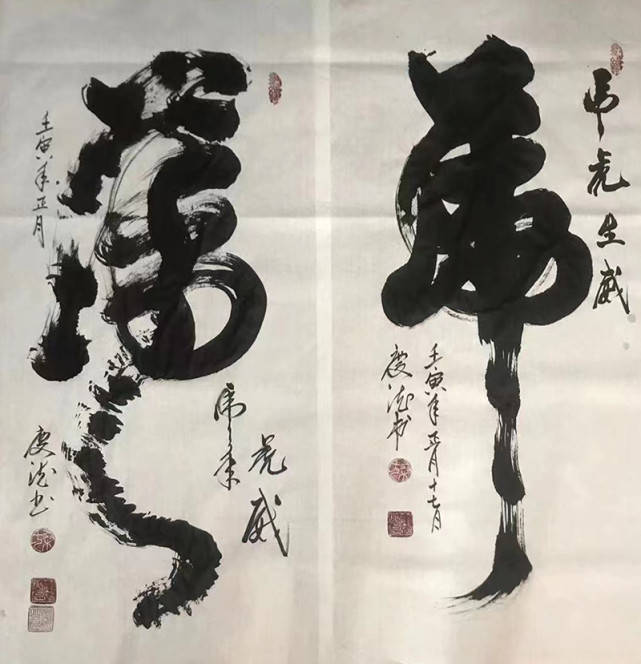 虎虎生威
虎
壬寅年正月十七
书
虎
虎威
虎年
壬寅年正月
书